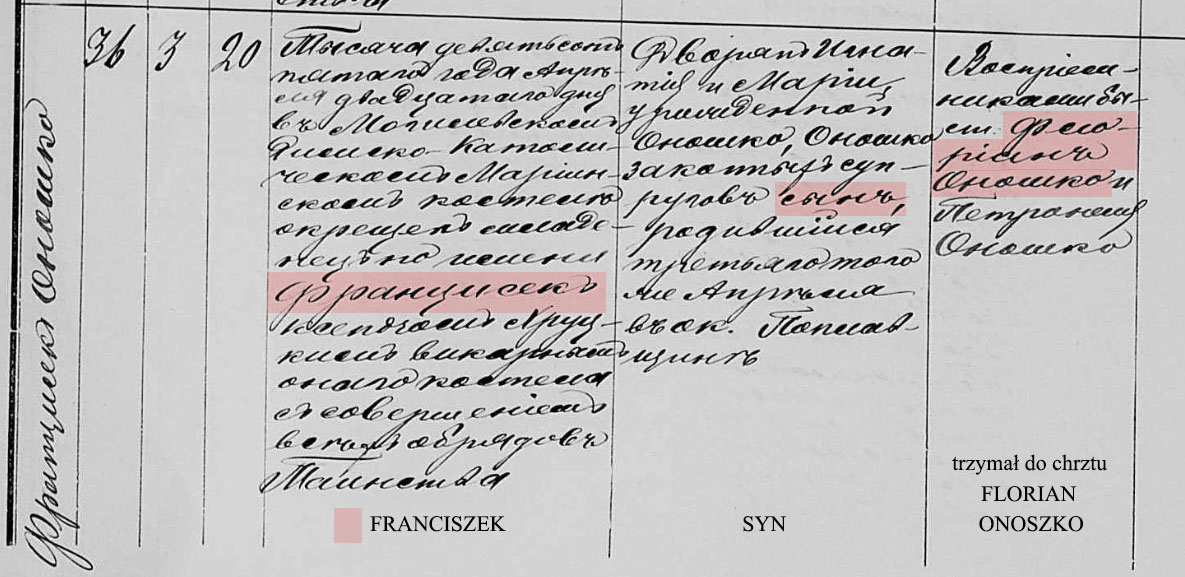 Францишекъ Оношко
36
3
20
Тысяча девятьсотъ
пятаго года Апрѣ-
ля двадцатаго дня
въ Могилевскомъ
Римско-Католи-
ческомъ Маріин-
скомъ костелѣ
окрещенъ младе-
нецъ по имени
Францисекъ
ксендзомъ
викарнымъ
онаго костела
съ совершеніемъ
всѣхъ обрядовъ
Таинства
Дворянъ Игна-
тія и Маріи,
урожденной
Оношко, Оношко
законныхъ суп-
руговъ сынъ,
родившійся
третьяго того
же Апрѣля
въ ок.
Воспріем-
никами бы-
ли Фло-
ріанъ
Оношко и
Петронелія
Оношко
FRANCISZEK
SYN
trzymał do chrztu
FLORIAN
ONOSZKO